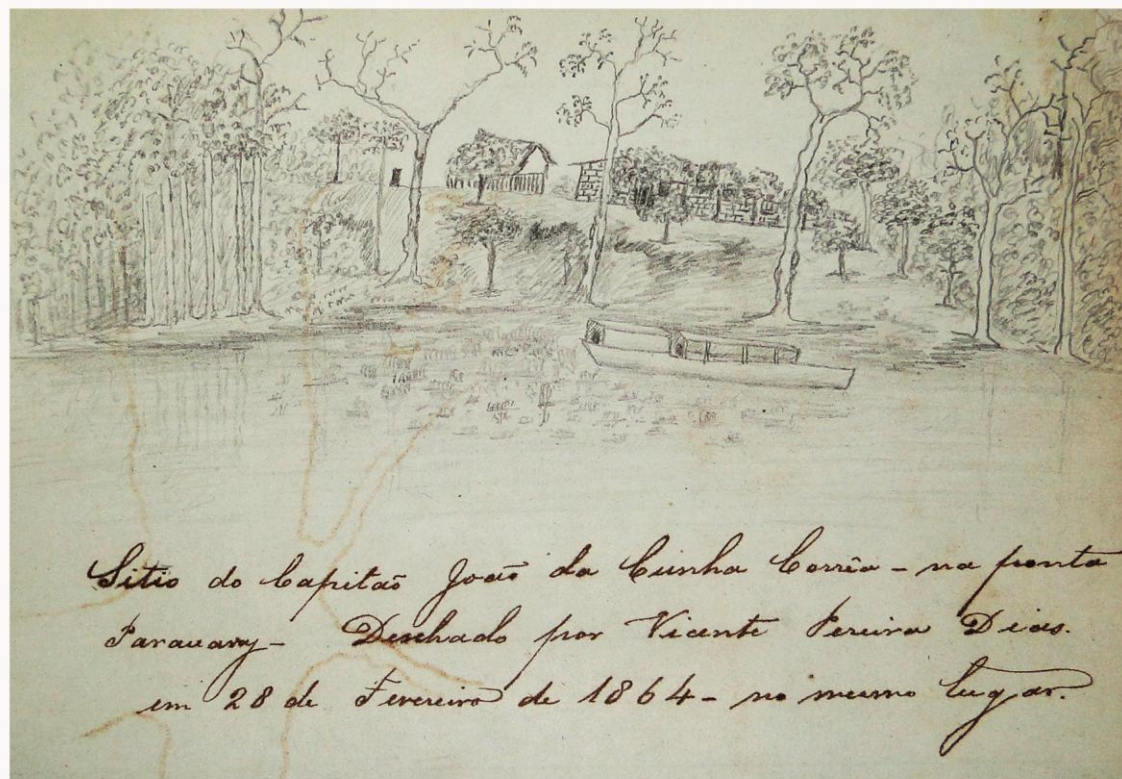 Sitio do Capitaõ Joaõ da Cunha Corrêa - na ponta
Parauary - Desenhado por Vicente Pereira Dias.
em 28 de Fevereiro de 1864 - no mesmo lugar.